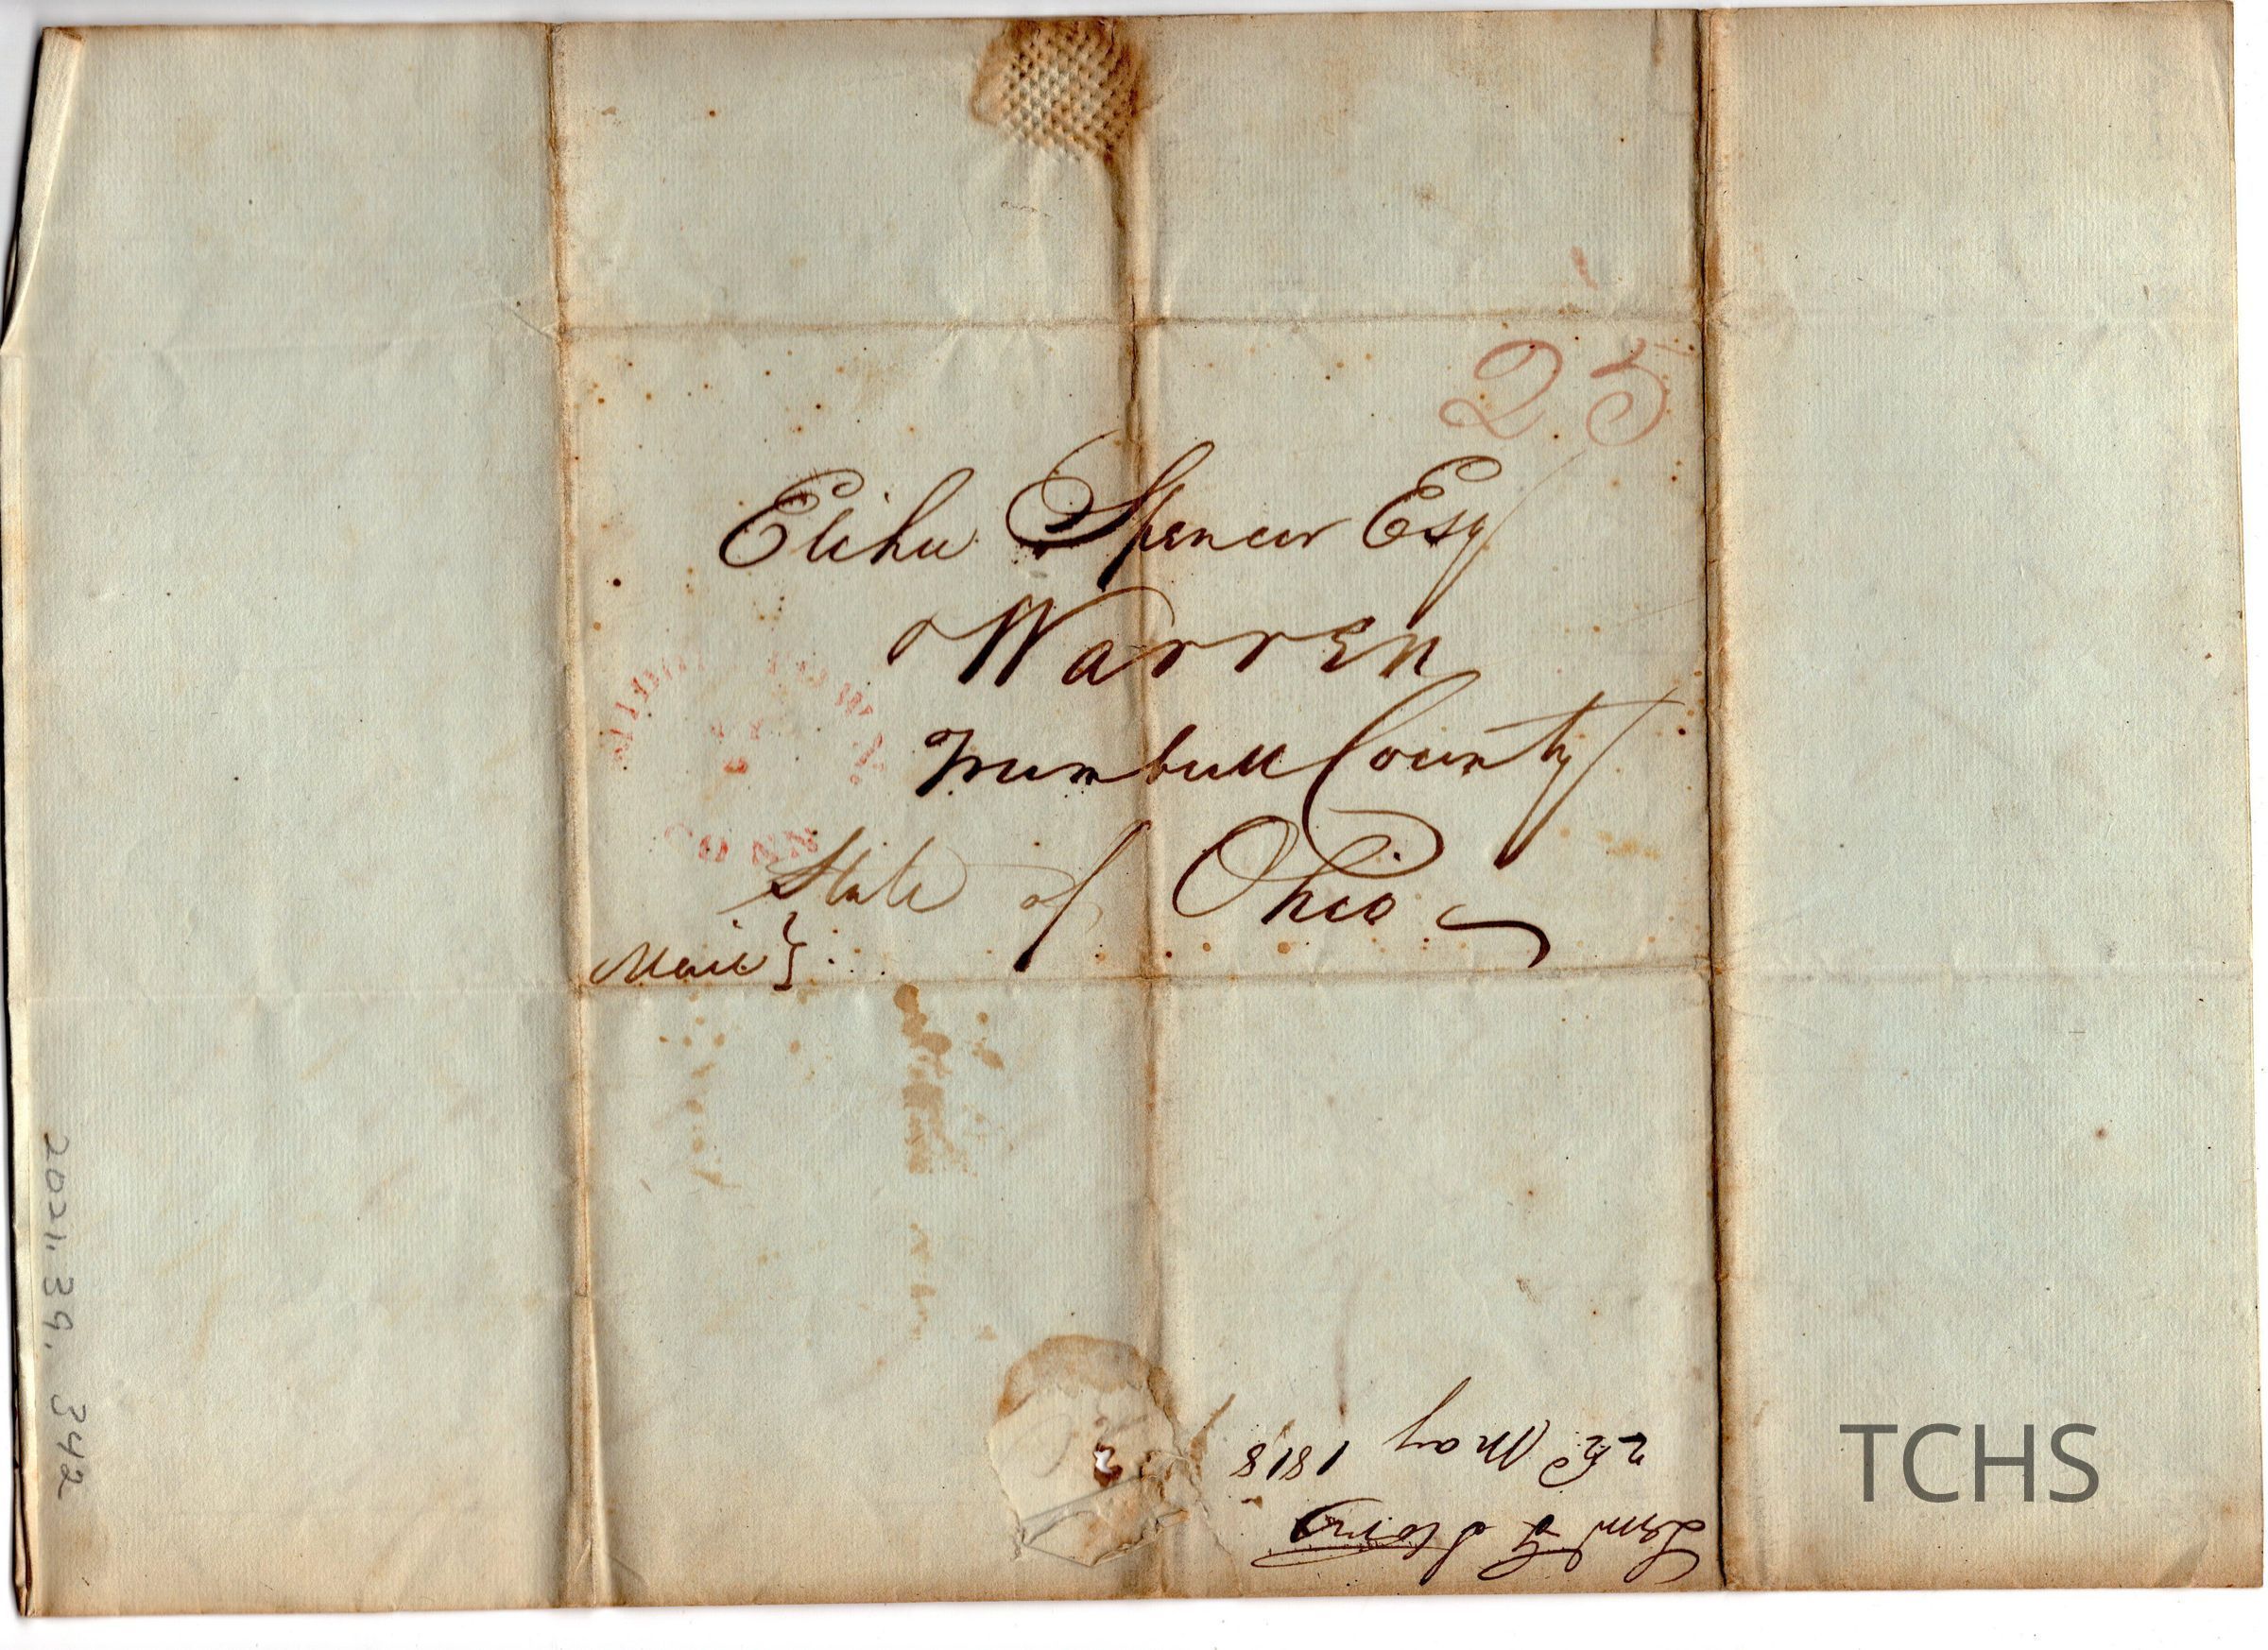 25
Elihu Spencer Esq
Warren
Trumbull County
State of Ohio
Mail
MIDDLETOWN.
CONN
22d May 1818
2021.39.342
TCHS